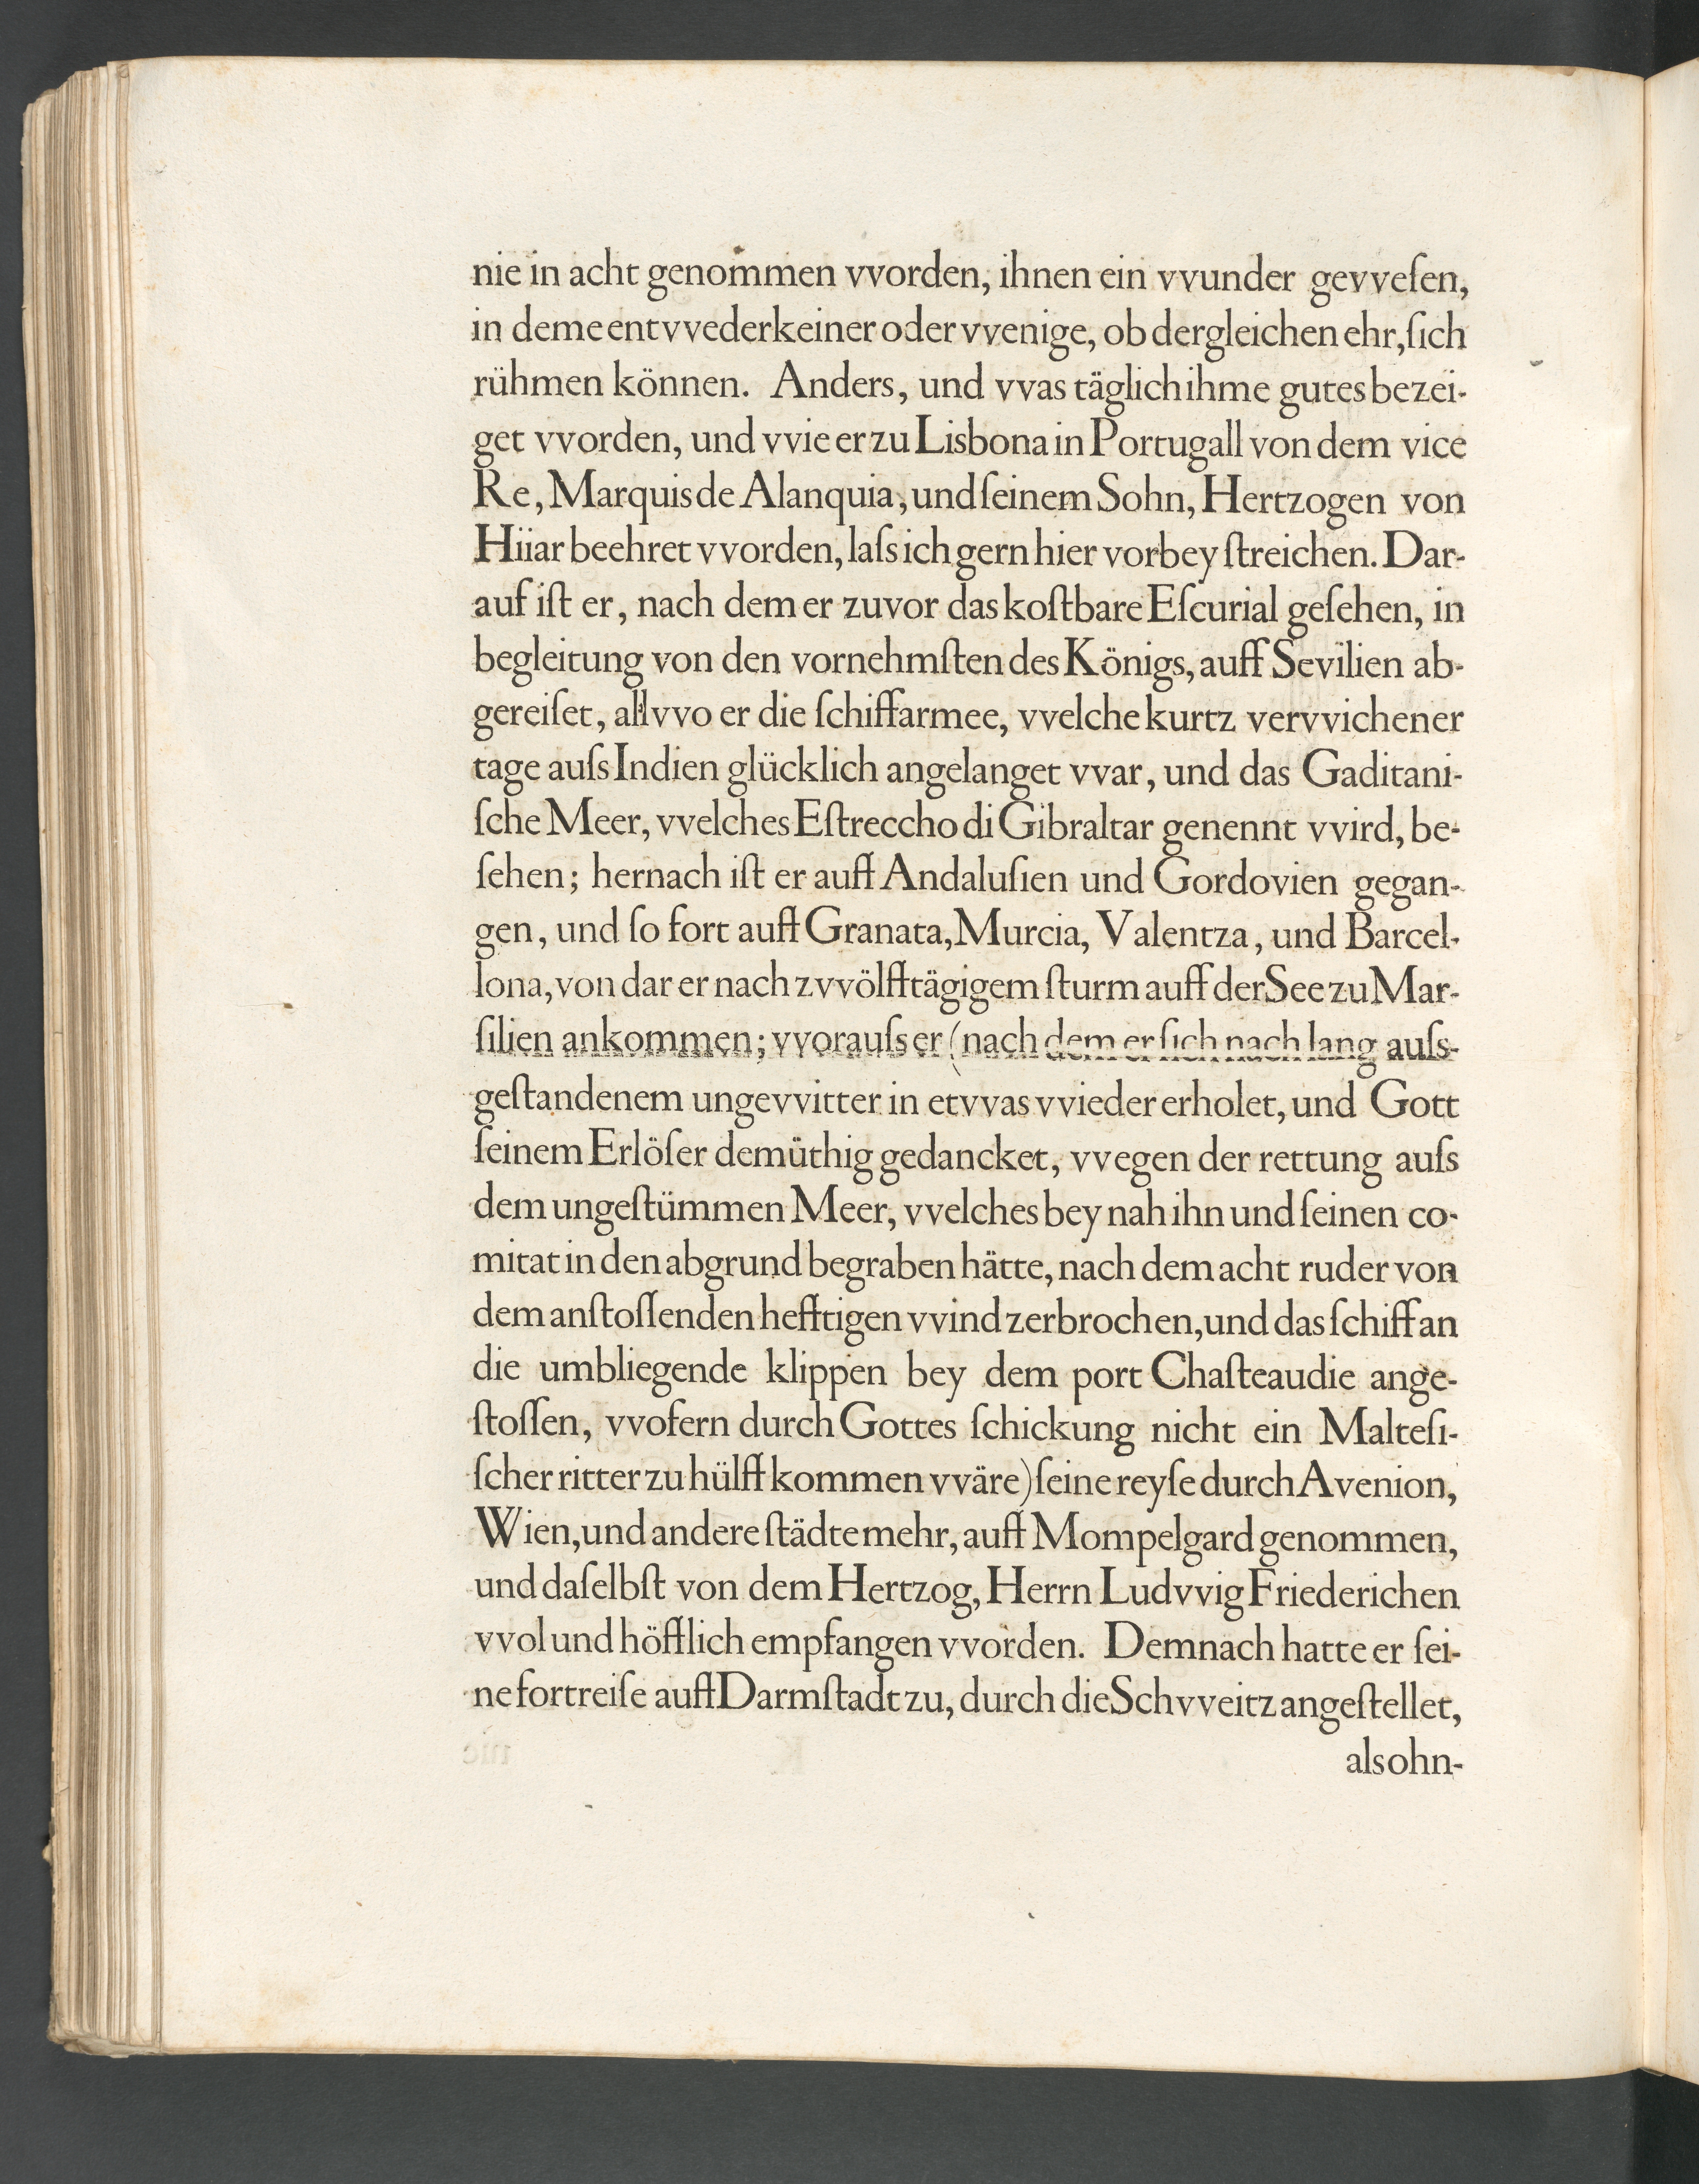 nie in acht genommen vvorden, ihnen ein vvunder gevveſen,
in deme entvveder keiner oder vvenige, ob dergleichen ehr, ſich
rühmen können. Anders, und vvas täglich ihme gutes bezei-
get vvorden, und vvie er zu Lisbona in Portugall von dem vice
Re, Marquis de Alanquia, und ſeinem Sohn, Hertzogen von
Hiiar beehret vvorden, laſs ich gern hier vorbey ſtreichen. Dar-
auf iſt er, nach dem er zuvor das koſtbare Eſcurial geſehen, in
begleitung von den vornehmſten des Königs, auff Sevilien ab-
gereiſet, allvvo er die ſchiffarmee, vvelche kurtz vervvichener
tage auſs Indien glücklich angelanget vvar, und das Gaditani-
ſche Meer, vvelches Eſtreccho di Gibraltar genennt vvird, be-
ſehen; hernach iſt er auff Andaluſien und Gordovien gegan-
gen, und ſo fort auff Granata, Murcia, Valentza, und Barcel-
lona, von dar er nach zvvölfftägigem ſturm auff der See zu Mar-
ſilien ankommen; vvorauſs er (nach dem er ſich nach lang auſs-
geſtandenem ungevvitter in etvvas vvieder erholet, und Gott
ſeinem Erlöſer demüthig gedancket, vvegen der rettung auſs
dem ungeſtümmen Meer, vvelches bey nah ihn und ſeinen co-
mitat in den abgrund begraben hätte, nach dem acht ruder von
dem anſtoſſenden hefftigen vvind zerbrochen, und das ſchiff an
die umbliegende klippen bey dem port Chaſteaudie ange-
ſtoſſen, vvofern durch Gottes ſchickung nicht ein Malteſi-
ſcher ritter zu hülff kommen vväre) ſeine reyſe durch Avenion,
Wien, und andere ſtädte mehr, auff Mompelgard genommen,
und daſelbſt von dem Hertzog, Herrn Ludvvig Friederichen
vvol und höfflich empfangen vvorden. Demnach hatte er ſei-
ne fortreiſe auff Darmſtadt zu, durch die Schvveitz angeſtellet,
als ohn-